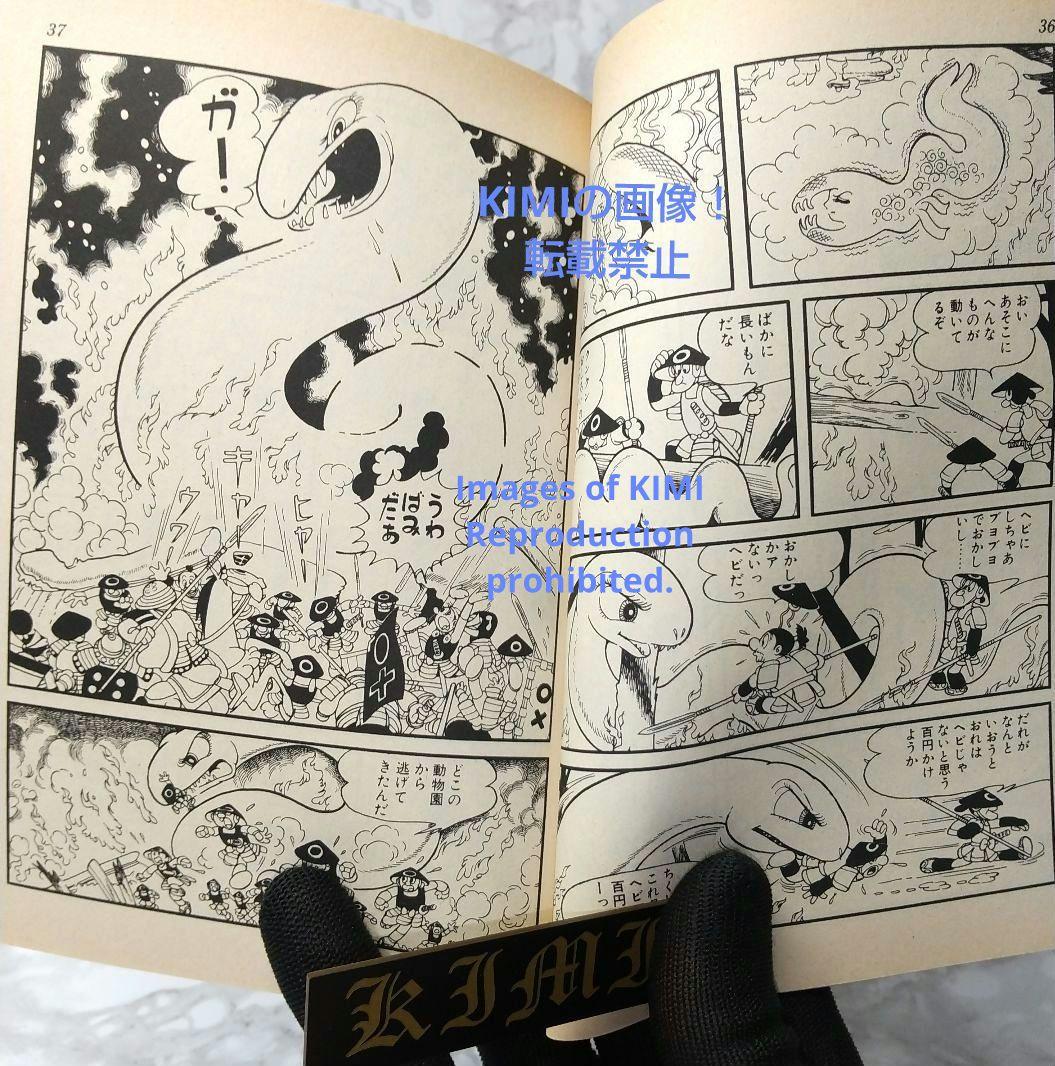 36
おい
あそこに
へんな
ものが
動いて
るぞ
ばかに
長いもん
だな
ヘビに
しちゃあ
ブヨブヨ
でおかし
いし……
おかし
かァ
ないっ
ヘビだっ
だれが
なんと
いおうと
おれは
ヘビじゃ
ないと思う
百円かけ
ようか
ちく
これ
ヘビ
百円
ーっ
37
ガー!
うわ
ばみ
だぁ
ヒャー
キャー
ワワー
○×
どこの
動物園
から
逃げて
きたんだ
KIMIの画像!
転載禁止
Images of KIMI
Reproduction
prohibited.
KIMI